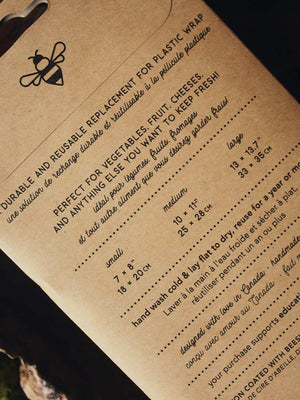 DURABLE AND REUSABLE REPLACEMENT FOR PLASTIC WRAP
une solution de rechange durable et réutilisable à la pellicule plastique
PERFECT FOR VEGETABLES, FRUIT, CHEESES,
AND ANYTHING ELSE YOU WANT TO KEEP FRESH!
idéal pour légumes, fruits, fromages
et tout autre aliment que vous désirez garder frais!
small
7 × 8"
18 × 20CM
medium
10 × 11"
25 × 28CM
large
13 × 13.7"
33 × 35CM
hand wash cold & lay flat to dry, reuse for a year or
Laver à la main à l'eau froide et sécher à plat
réutiliser pendant un an ou plus
designed with love in Canada
conçu avec amour au Canada
handmade
your purchase supports
COATED WITH
DE CIRE D'ABEILLE